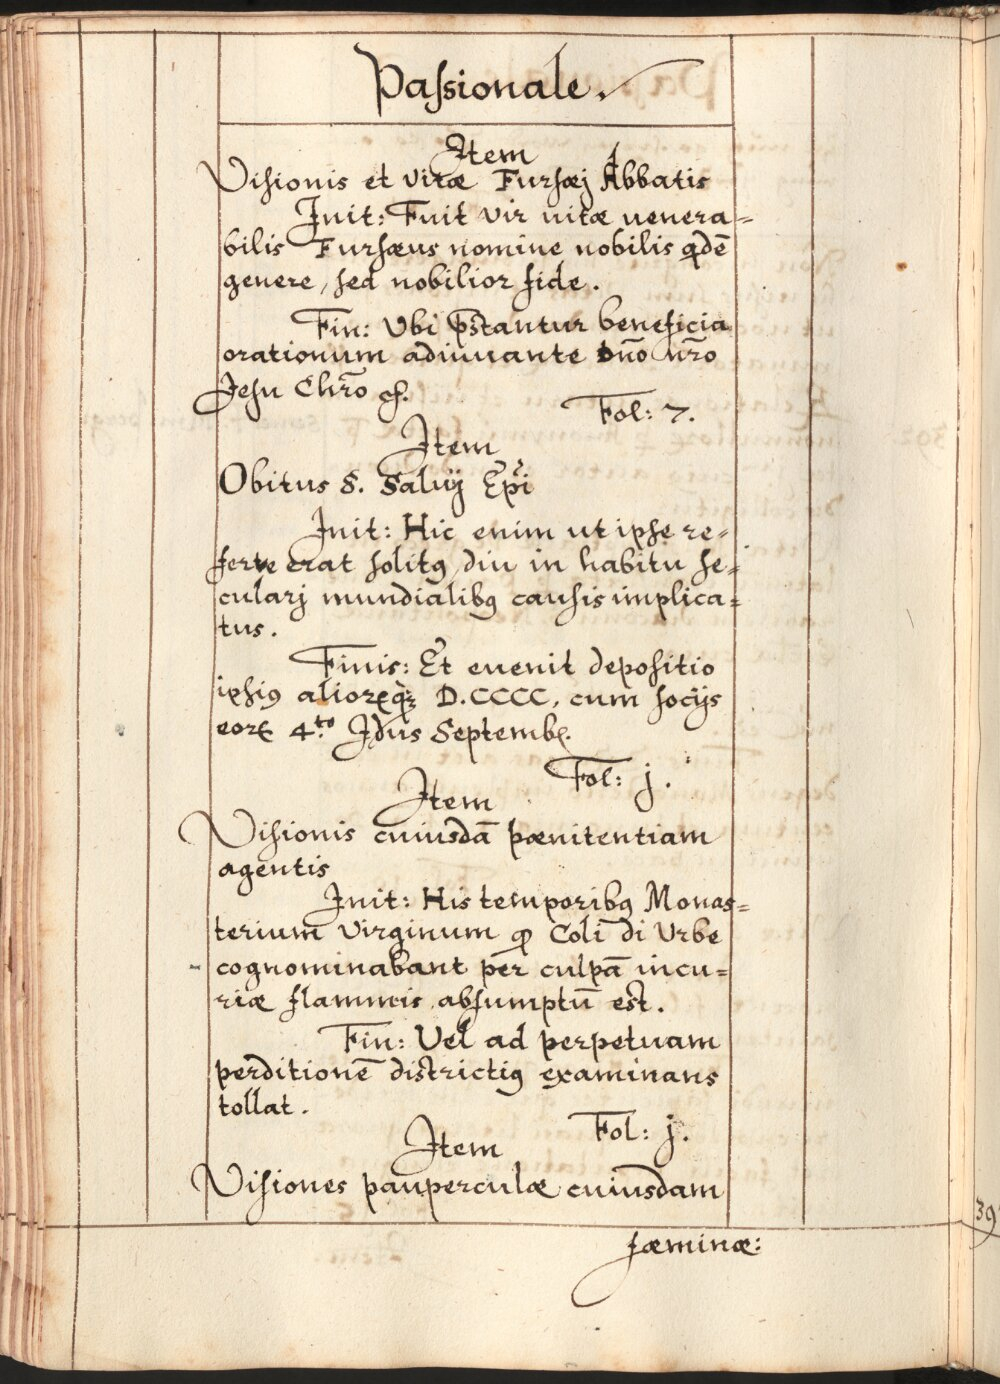 Paſsionale.
Item
Viſionis et vitæ Furſæj Abbatis
Init: Fuit vir uitæ uenera=
bilis Furſæus nomine nobilis qdē
genere, ſed nobilior fide.
Fin: Vbi pſtantur beneficia
orationum adiuuante Dn̄o nr̄o
Jeſu Chr̄o
Fol: 7.
Item
Obitus S. Saluij Ep̄i
Init: Hic enim ut ipſe re=
ferre erat ſolitꝰ diu in habitu ſe=
cularj mundialibꝰ cauſis implica=
tus.
Finis: Et euenit depoſitio
ipſiꝰ alioꝝq̢ꝫ D.CCCC, cum ſocijs
eoꝝ 4.to Idus Septemb.
Fol: j.
Item
Viſionis cuiusdā pænitentiam
agentis
Init: His temporibꝰ Monas=
terium Virginum qͦ Coli di Vrbe
cognominabant per culpā incu=
riæ flammis abſumptū eſt.
Fin: Vel ad perpetuam
perditionē diſtrictiꝰ examinans
tollat.
Fol: j.
Item
Viſiones pauperculæ cuiusdam
fæminæ:
39